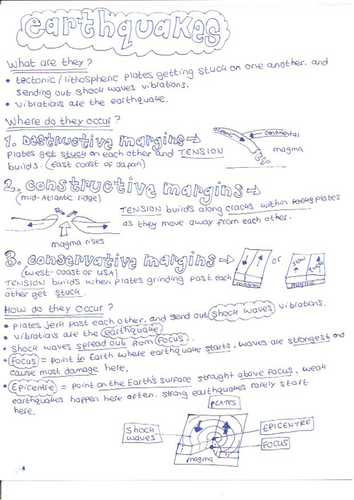 earthquakes
What are they?
• tectonic / lithospheric plates getting stuck on one another. and
sending out shock waves vibrations.
• vibrations are the earthquake.
Where do they occur?
1. Destructive margins →
Plates get stuck on each other and TENSION
builds. (east coast of Japan)
continental
magma
2. constructive margins →
(mid-Atlantic ridge)
magma rises
TENSION builds along cracks within plates
as they move away from each other.
3. conservative margins →
(west-coast of USA)
TENSION builds when plates grinding past each
other get stuck.
or
magma
How do they occur?
• plates jerk past each other, and send out shock waves vibrations.
• vibrations are the earthquake
• shock waves spread out from FOCUS.
• FOCUS = point in Earth where earthquake starts. waves are strongest and
cause most damage here.
• Epicentre = point on the Earth's surface straight above focus. weak
earthquakes happen here often. strong earthquakes rarely start
here.
PLATES
Shock
waves
EPICENTRE
FOCUS
magma